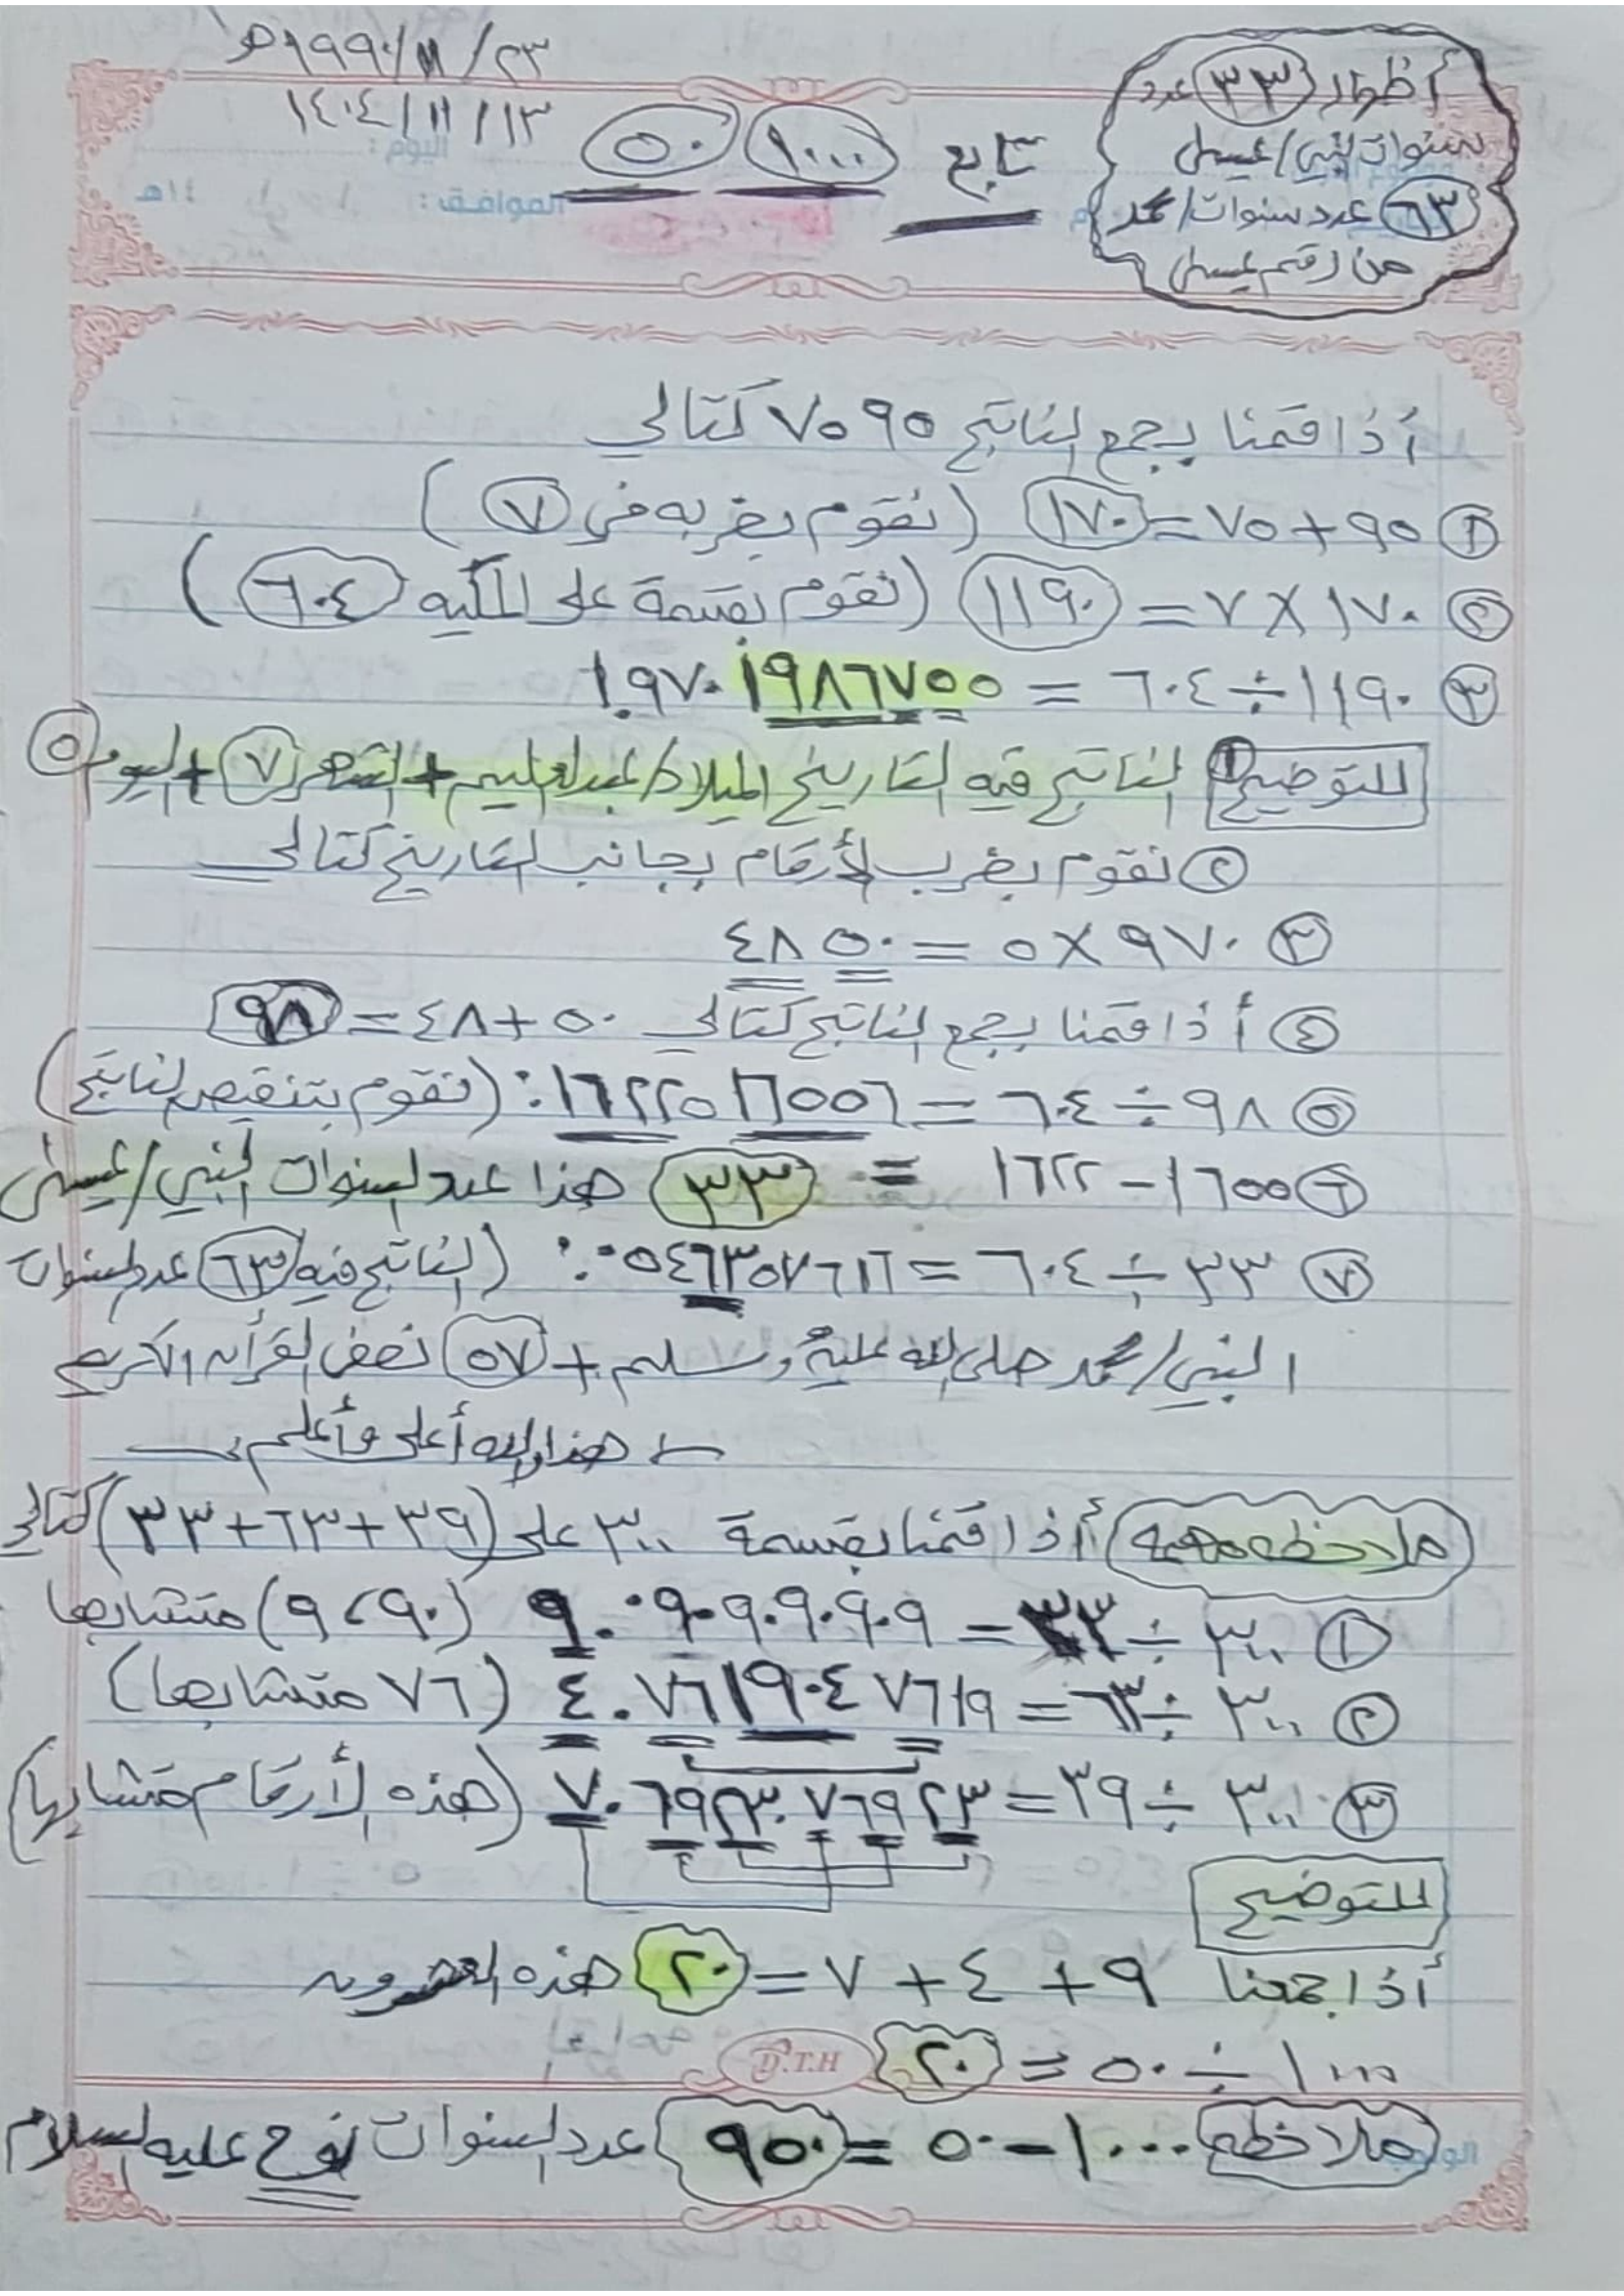 ٢٣ / ١١ / ١٩٩٠هـ
١٣ / ١١ / ١٤٠٤
اليوم :
الموافق :
١٤هـ
تابع ١٠٠٠ ٥٠
أظهار ٣٣ عدد
سنوات النبي/عيسى
٦٣ عدد سنوات/محمد
من رقم عيسى
أذا قمنا بجمع الناتج ٩٥ ٧٥ كتالي
① ٩٥ + ٧٥ = ١٧٠ (نقوم بضربه في ٧)
② ١٧٠ × ٧ = ١١٩٠ (نقوم بقسمة على المكيه ٦٠٤)
③ ١١٩٠ ÷ ٦٠٤ = ١.٩٧٠١٩٨٦٧٥٥
للتوضيح ① الناتج فيه التاريخ الميلاد/عبدالعليم + الشهر ٧ + اليوم ٥
② نقوم بضرب الأرقام بجانب التاريخ كتالي
③ ٩٧٠ × ٥ = ٤٨٥٠
④ أذا قمنا بجمع الناتج كتالي ٥٠ + ٤٨ = ٩٨
⑤ ٩٨ ÷ ٦٠٤ = ٠.١٦٢٢٥١٦٥٥٦ (نقوم بتنقيص الناتج)
⑥ ١٦٥٥ - ١٦٢٢ = ٣٣ هذا عدد السنوات النبي/عيسى
⑦ ٣٣ ÷ ٦٠٤ = ٠.٠٥٤٦٣٥٧٦١٦ (الناتج فيه ٦٣ عدد السنوات
النبي/محمد صلى الله عليه وسلم + ٥٧ نصف القرأن الكريم
هذا والله أعلى وأعلم
ملاحظه مهمه أذا قمنا بقسمة ٣٠٠ على (٣٩+٦٣+٣٣) كتالي
① ٣٠٠ ÷ ٣٣ = ٩.٠٩٠٩٠٩٠٩ (٩٠، ٩) متشابها
② ٣٠٠ ÷ ٦٣ = ٤.٧٦١٩٠٤٧٦١٩ (٧٦ متشابها)
③ ٣٠٠ ÷ ٣٩ = ٧.٦٩٢٣٠٧٦٩٢٣ (هذه الأرقام متشابها)
للتوضيح
أذا جمعنا ٩ + ٤ + ٧ = ٢٠ هذه العشرون
١٠٠٠ ÷ ٥٠ = ٢٠
D.T.H
ملاحظه ١٠٠٠ - ٥٠ = ٩٥٠ عدد السنوات نوح عليه السلام